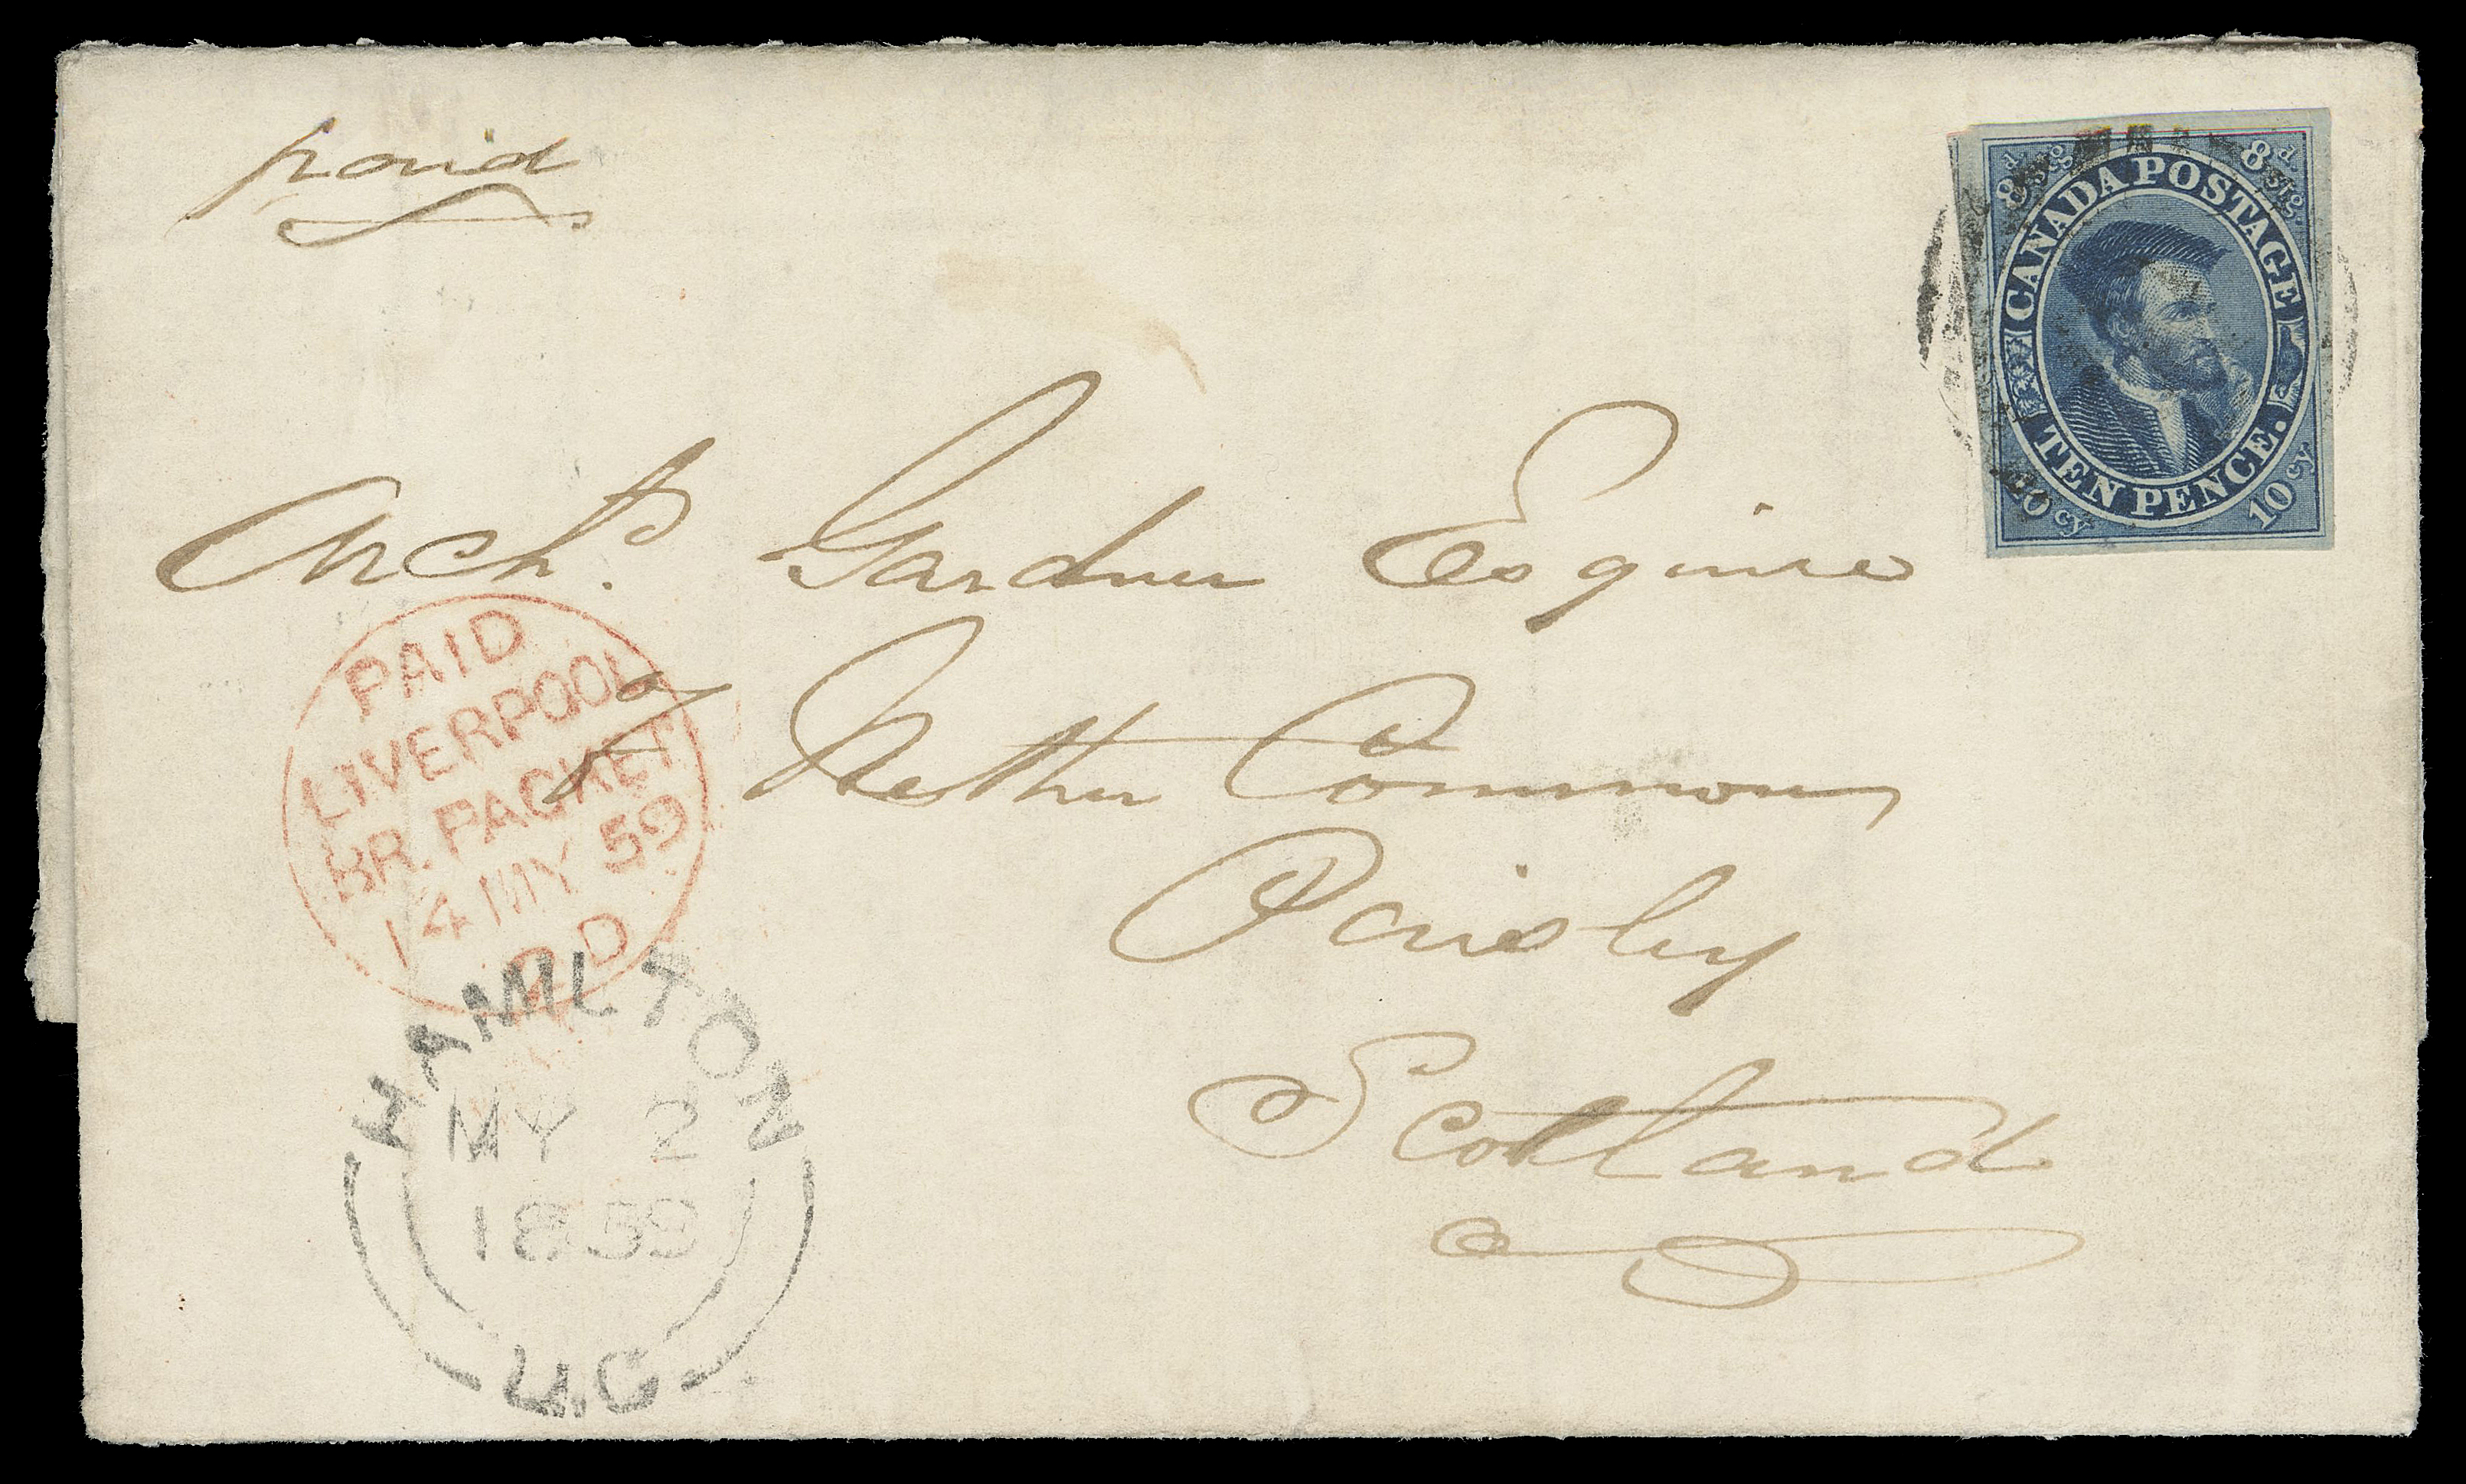 paid
8d stg. 8d stg.
CANADA POSTAGE
TEN PENCE.
10 cy 10 cy
Archd. Gardner Esquire
of Nether Common
Paisley
Scotland
PAID
LIVERPOOL
BR. PACKET
14 MY 59
2D
HAMILTON
MY 2
1859
U.C.